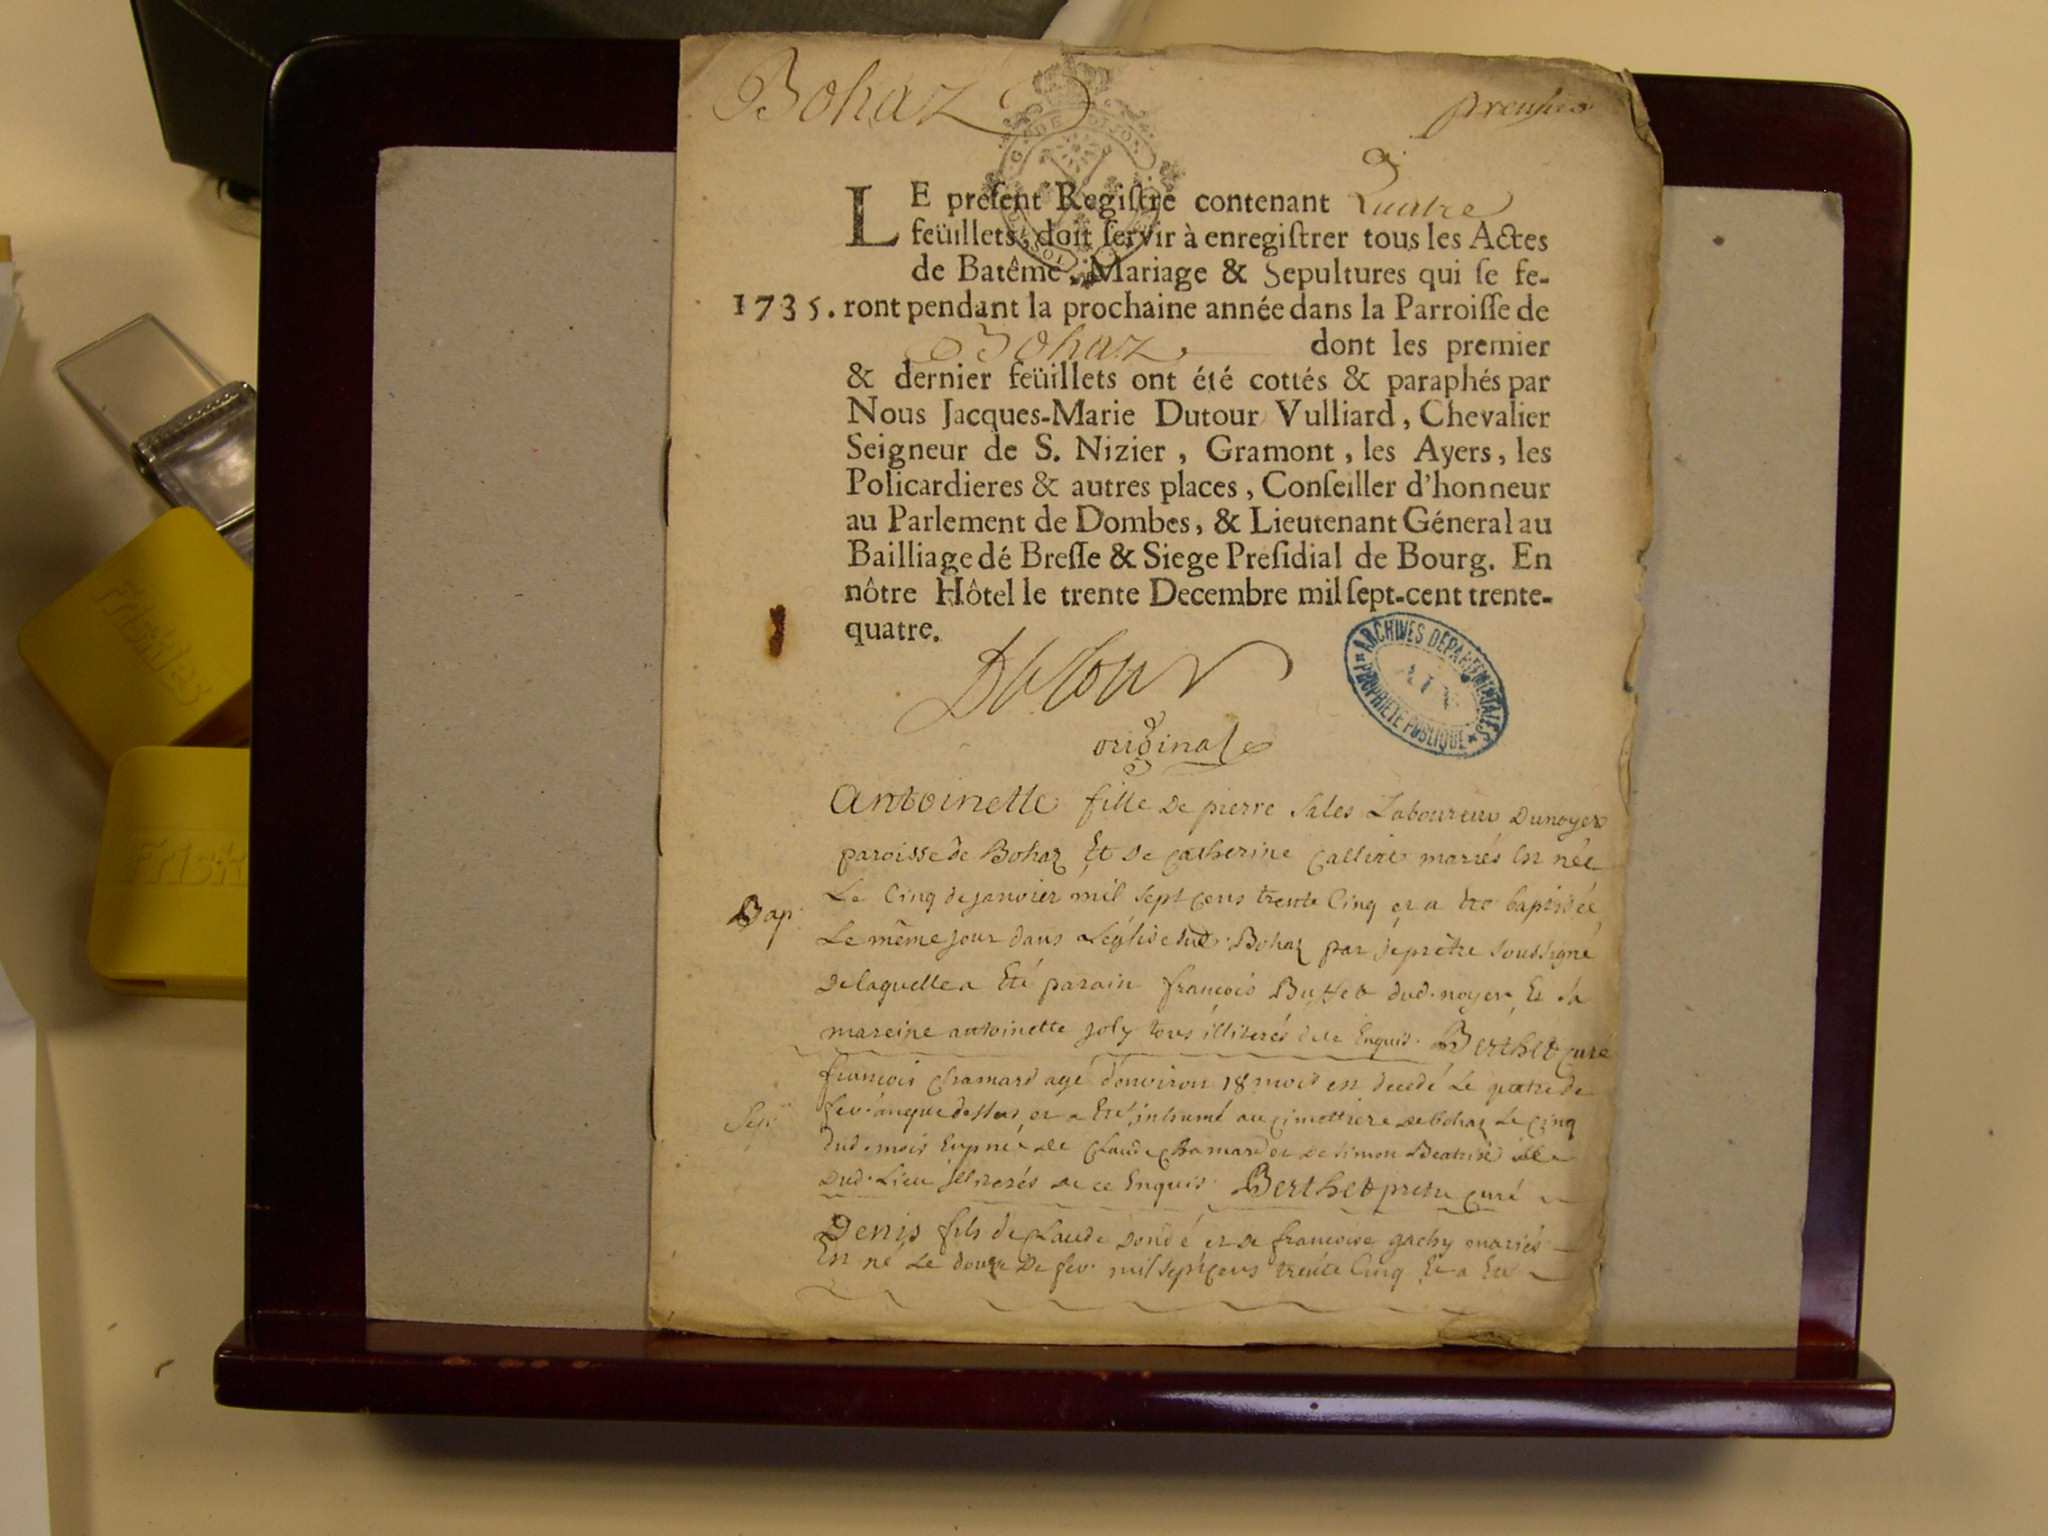 Bohaz
premier
LE preſent Regiſtre contenant Quatre
feüillets, doit ſervir à enregiſtrer tous les Actes
de Batême, Mariage & Sepultures qui ſe fe-
1735. ront pendant la prochaine année dans la Parroiſſe de
Bohaz dont les premier
& dernier feüillets ont été cottés & paraphés par
Nous Jacques-Marie Dutour Vulliard, Chevalier
Seigneur de S. Nizier, Gramont, les Ayers, les
Policardieres & autres places, Conſeiller d'honneur
au Parlement de Dombes, & Lieutenant Géneral au
Bailliage dé Breſſe & Siege Preſidial de Bourg. En
nôtre Hôtel le trente Decembre mil ſept-cent trente-
quatre.
Dutour
ARCHIVES DEPARTEMENTALES
AIN
PROPRIETE PUBLIQUE
original
Antoinette fille de pierre Sales Laboureur dunoyer
paroisse de Bohaz Et de catherine mariés est née
Le Cinq de janvier mil sept cens trente Cinq et a été baptisée
Bap.
Le même jour dans L'églisedud. Bohaz par le prêtre soussigné
de laquelle a Eté parain françois Buffet dud. noyer Et sa
mareine antoinette joly tous illiterés de ce Enquis. Berthet curé
francois chamard agé d'environ 18 mois est decedé Le de
Sep.
fev. et a Eté inhumé au cimettiere de bohaz Le Cinq
dud. mois de Claude chamard et de simon
dud. Lieu illiterés de ce Enquis. Berthet pretre curé
Denis fils de Claude dondé et de francoise gachy mariés
Est né Le douze de fev. mil sept cens trente Cinq Et a Eté